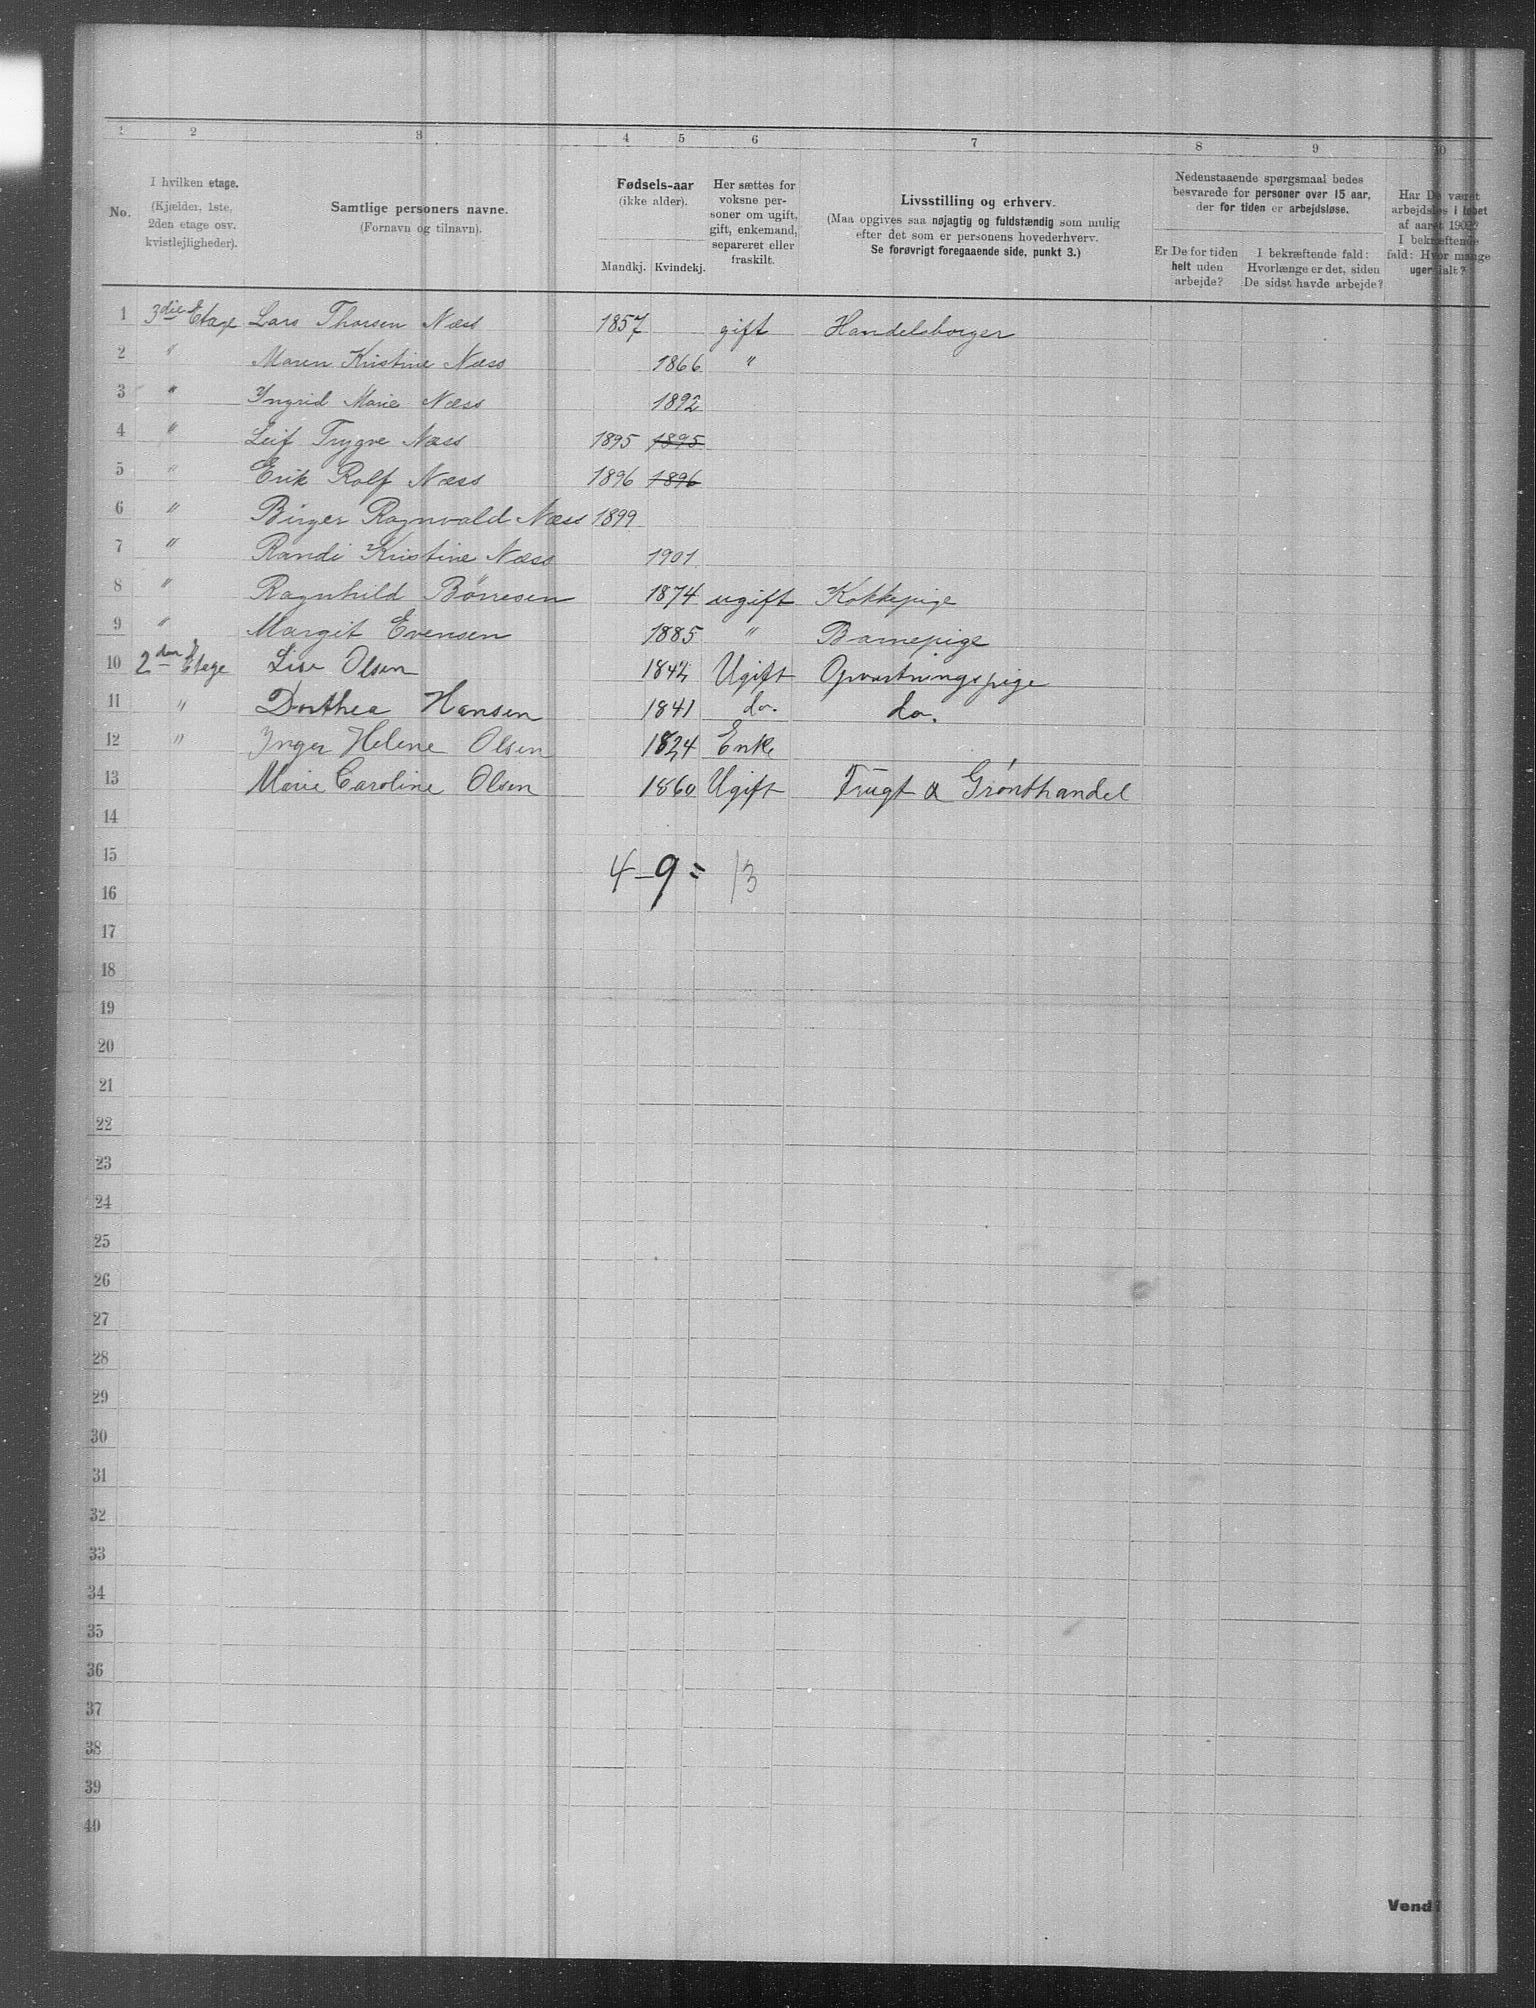 1 2 3 4 5 6 7 8 9 10
No.
I hvilken etage.
(Kjælder, 1ste,
2den etage osv.
kvistlejligheder).
Samtlige personers navne.
(Fornavn og tilnavn).
Fødsels-aar
(ikke alder).
Mandkj. Kvindekj.
Her sættes for
voksne per-
soner om ugift,
gift, enkemand,
separeret eller
fraskilt.
Livsstilling og erhverv.
(Maa opgives saa nøjagtig og fuldstændig som mulig
efter det som er personens hovederhverv.
Se forøvrigt foregaaende side, punkt 3.)
Nedenstaaende spørgsmaal bedes
besvarede for personer over 15 aar,
der for tiden er arbejdsløse.
Er De for tiden
helt uden
arbejde?
I bekræftende fald:
Hvorlænge er det, siden
De sidst havde arbejde?
Har De været
arbejdsløs i løbet
af aaret 1902?
I bekræftende
fald: Hvor mange
uger ialt?
1 3die Etage Lars Thorsen Næss 1857 gift Handelsborger
2 " Maren Kristine Næss 1866 "
3 " Yngrid Marie Næss 1892
4 " Leif Trygve Næss 1895 1895
5 " Erik Rolf Næss 1896 1896
6 " Birger Ragnvald Næss 1899
7 " Randi Kristine Næss 1901
8 " Ragnhild Börresen 1874 ugift Kokkepige
9 " Margit Evensen 1885 " Barnepige
10 2den Etage Lise Olsen 1842 Ugift Opvartningspige
11 " Dorthea Hansen 1841 do. do.
12 " Inger Helene Olsen 1824 Enke
13 Marie Caroline Olsen 1860 Ugift Frugt & Grønthandel
14
15
4 – 9 = 13
16
17
18
19
20
21
22
23
24
25
26
27
28
29
30
31
32
33
34
35
36
37
38
39
40
Vend!